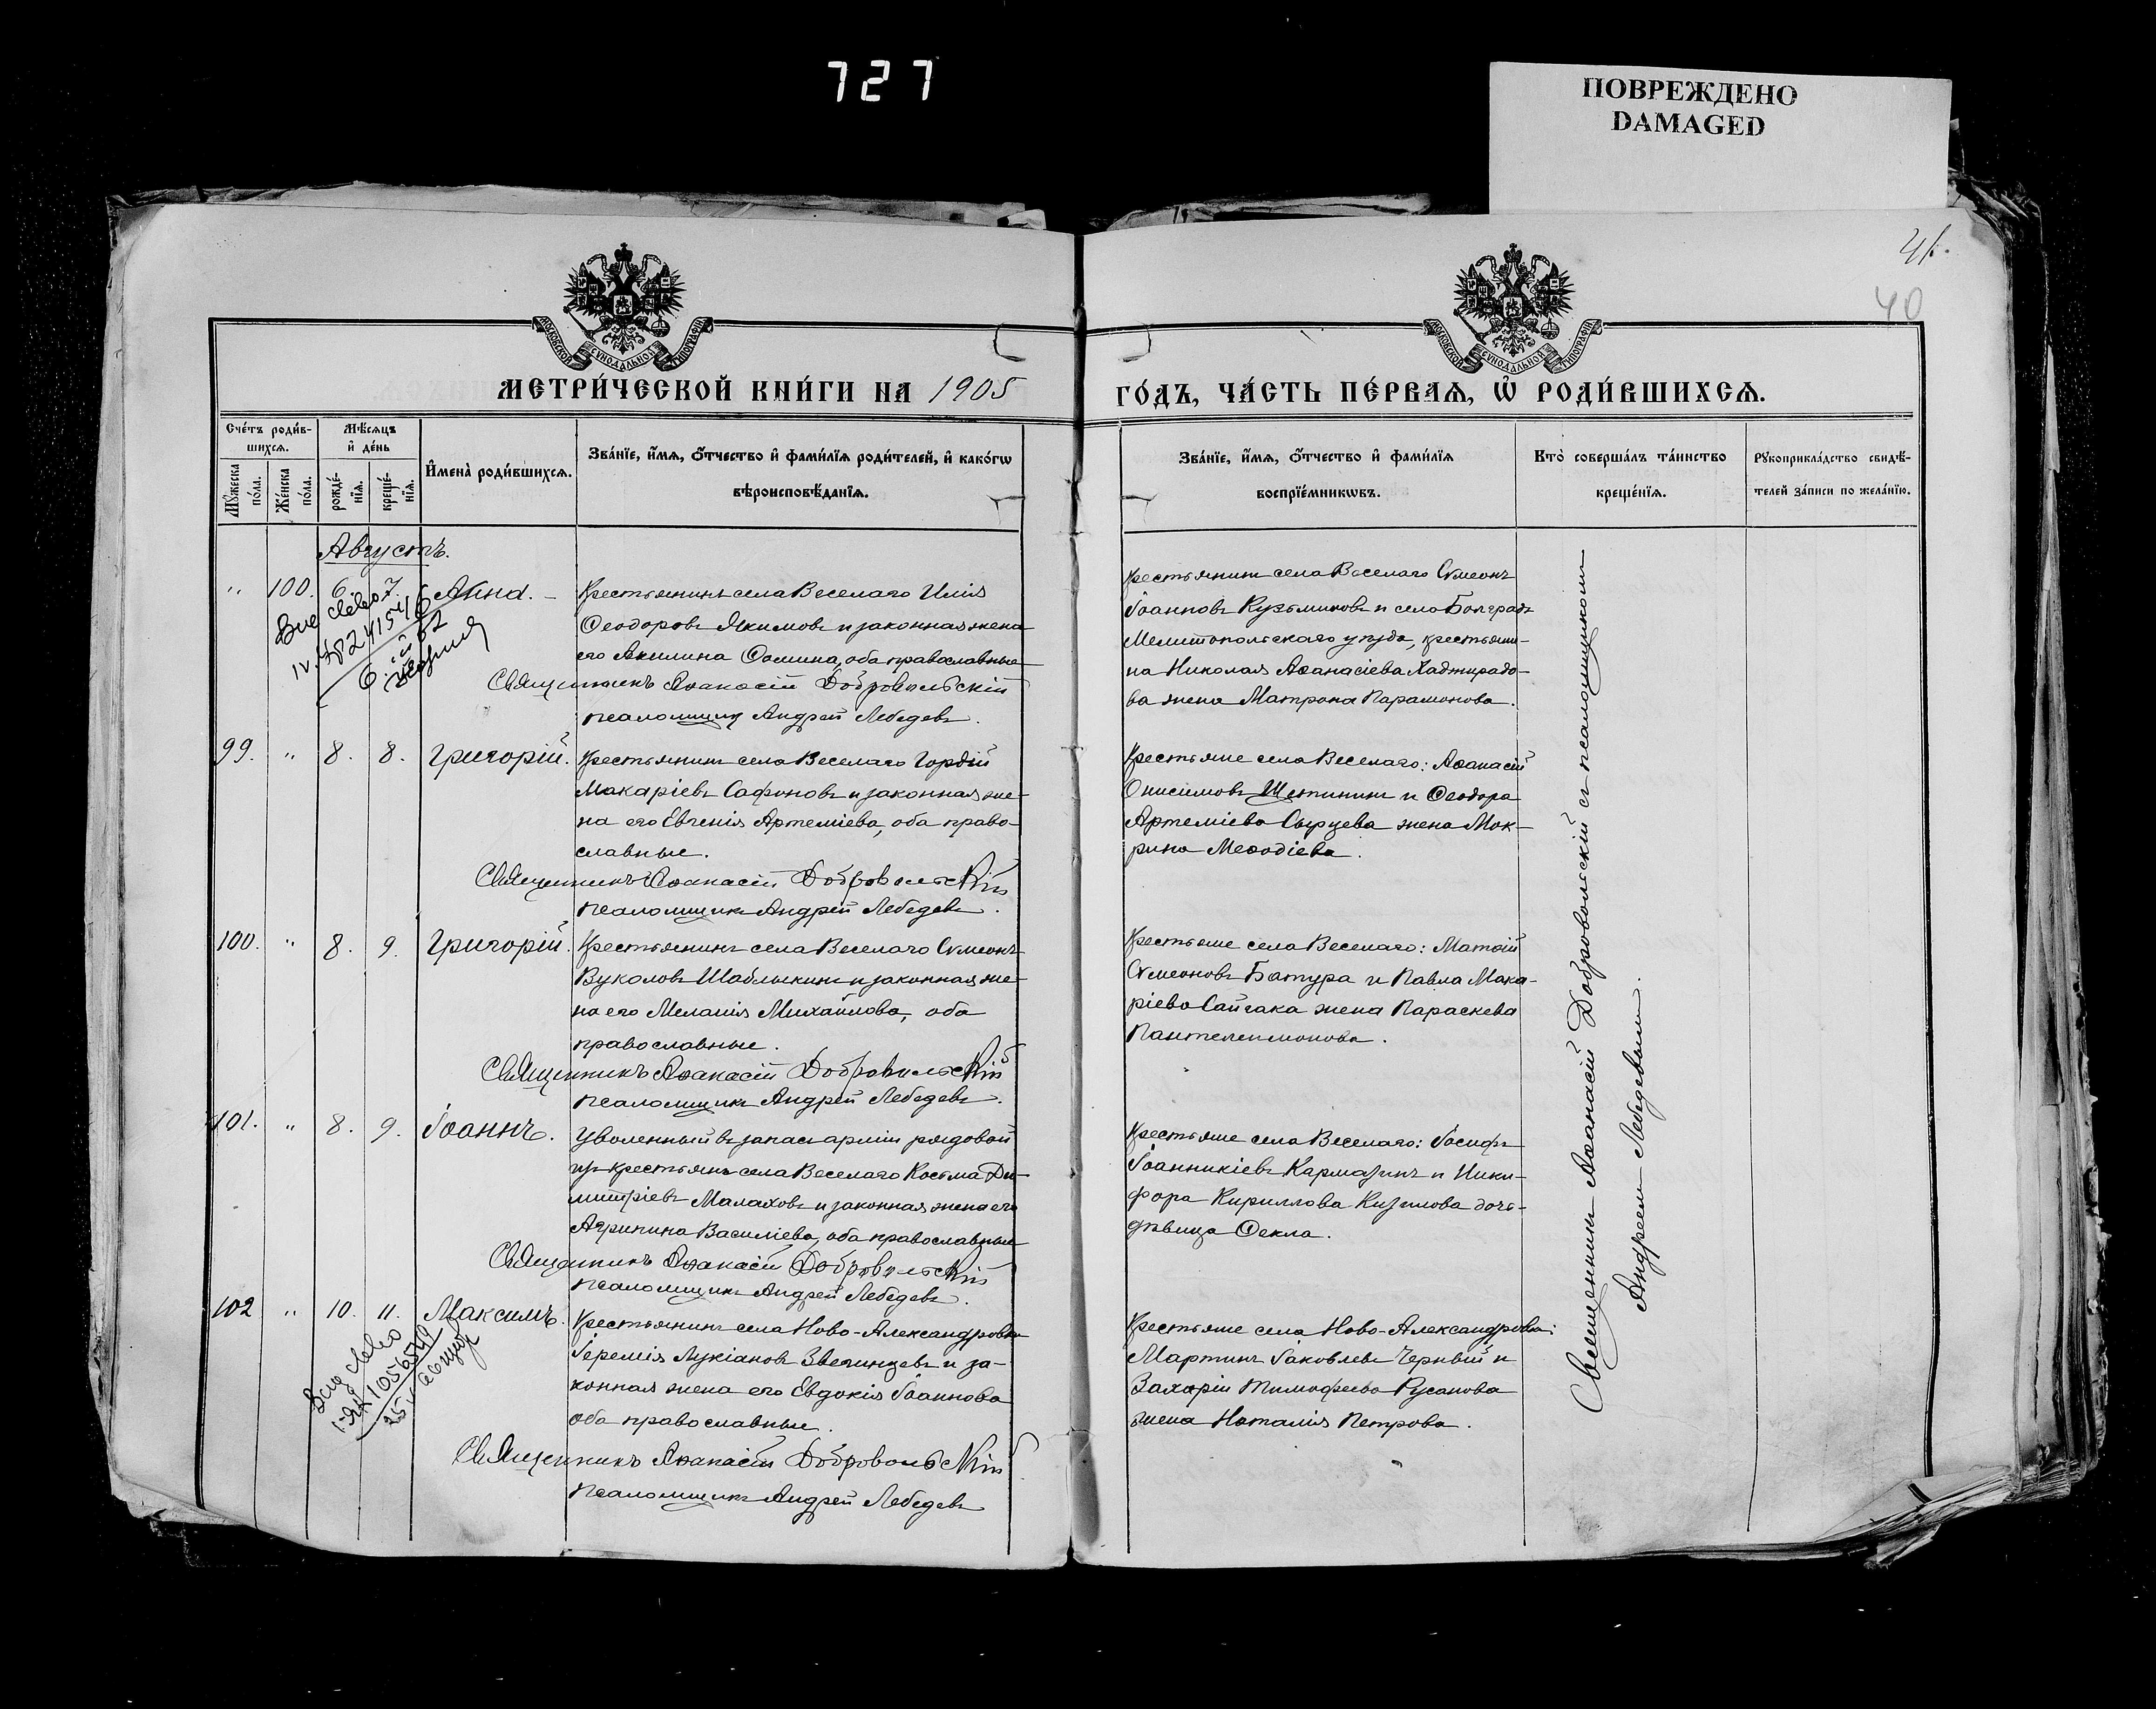 727
ПОВРЕЖДЕНО
DAMAGED
41.
40
МОСКОВСКОЙ СѴНОДАЛЬНОЙ ТИПОГРАФІИ
МОСКОВСКОЙ СѴНОДАЛЬНОЙ ТИПОГРАФІИ
МЕТРИ́ЧЕСКОЙ КНИ́ГИ НА 1905
ГО́ДЪ, ЧА́СТЬ ПЕ́РВАѦ, Ѽ РОДИ́ВШИХСѦ.
Сче́тъ роди́в-
шихсѧ.
Мꙋ́жеска по́ла.
Же́нска по́ла.
Мѣ́сѧцъ
и҆ де́нь
рожде́-
нїѧ.
креще́-
нїѧ.
И҆мена̀ роди́вшихсѧ.
Зва́нїе, и҆́мѧ, ѻ҆́тчество и҆ фами́лїѧ роди́телей, и҆ како́гѡ
вѣроисповѣ́данїѧ.
Зва́нїе, и҆́мѧ, ѻ҆́тчество и҆ фами́лїѧ
воспрїе́мникѡвъ.
Кто̀ соверша́лъ та́инство
креще́нїѧ.
Рꙋкоприкла́дство свидѣ́-
телей за́писи по жела́нїю.
Августъ.
" 100. 6. 7. Анна. –
Крестьянинъ села Веселаго Илія
Ѳеодоровъ Якимовъ и законная жена
его Акилина Ѳомина, оба православные
Священникъ Аѳанасій Добровольскій
псаломщикъ Андрей Лебедевъ.
Крестьянинъ села Веселаго Сѵмеонъ
Іоанновъ Кузьминовъ и села Болградъ
Мелитопольскаго уѣзда, крестьяни-
на Николая Аѳанасіева Хаджирадо-
ва жена Матрона Парамонова.
99. " 8. 8. Григорій.
Крестьянинъ села Веселаго Гордій
Макаріевъ Сафоновъ и законная же-
на его Евгенія Артеміева, оба право-
славные.
Священникъ Аѳанасій Добровольскій
псаломщикъ Андрей Лебедевъ.
Крестьяне села Веселаго: Аѳанасій
Онисимовъ Щетининъ и Ѳеодора
Артеміева Сырцева жена Мок-
рина Меѳодіева.
100. " 8. 9. Григорій.
Крестьянинъ села Веселаго Сѵмеонъ
Вуколовъ Шаблыкинъ и законная же-
на его Меланія Михайлова, оба
православные.
Священникъ Аѳанасій Добровольскій
псаломщикъ Андрей Лебедевъ.
Крестьяне села Веселаго: Матѳій
Сѵмеоновъ Батура и Павла Мака-
ріева Сайгака жена Параскева
Пантелеимонова.
101. " 8. 9. Іоаннъ.
Уволенный въ запасъ арміи рядовой
изъ крестьянъ села Веселаго Косьма Ди-
митріевъ Малаховъ и законная жена его
Агрипина Василіева, оба православные
Священникъ Аѳанасій Добровольскій
псаломщикъ Андрей Лебедевъ.
Крестьяне села Веселаго: Іосифъ
Іоанникіевъ Кармазинъ и Ники-
фора Кириллова Кизилова дочь-
дѣвица Ѳекла.
102 " 10. 11. Максимъ.
Крестьянинъ села Ново-Александровки
Іеремія Лукіановъ Звегинцевъ и за-
конная жена его Евдокія Іоаннова
оба православные.
Священникъ Аѳанасій Добровольскій
псаломщикъ Андрей Лебедевъ
Крестьяне села Ново-Александровки:
Мартинъ Іаковлевъ Черный и
Захарія Тимофеева Русанова
жена Наталія Петрова.
Священникъ Аѳанасій Добровольскій съ псаломщикомъ
Андреемъ Лебедевымъ.